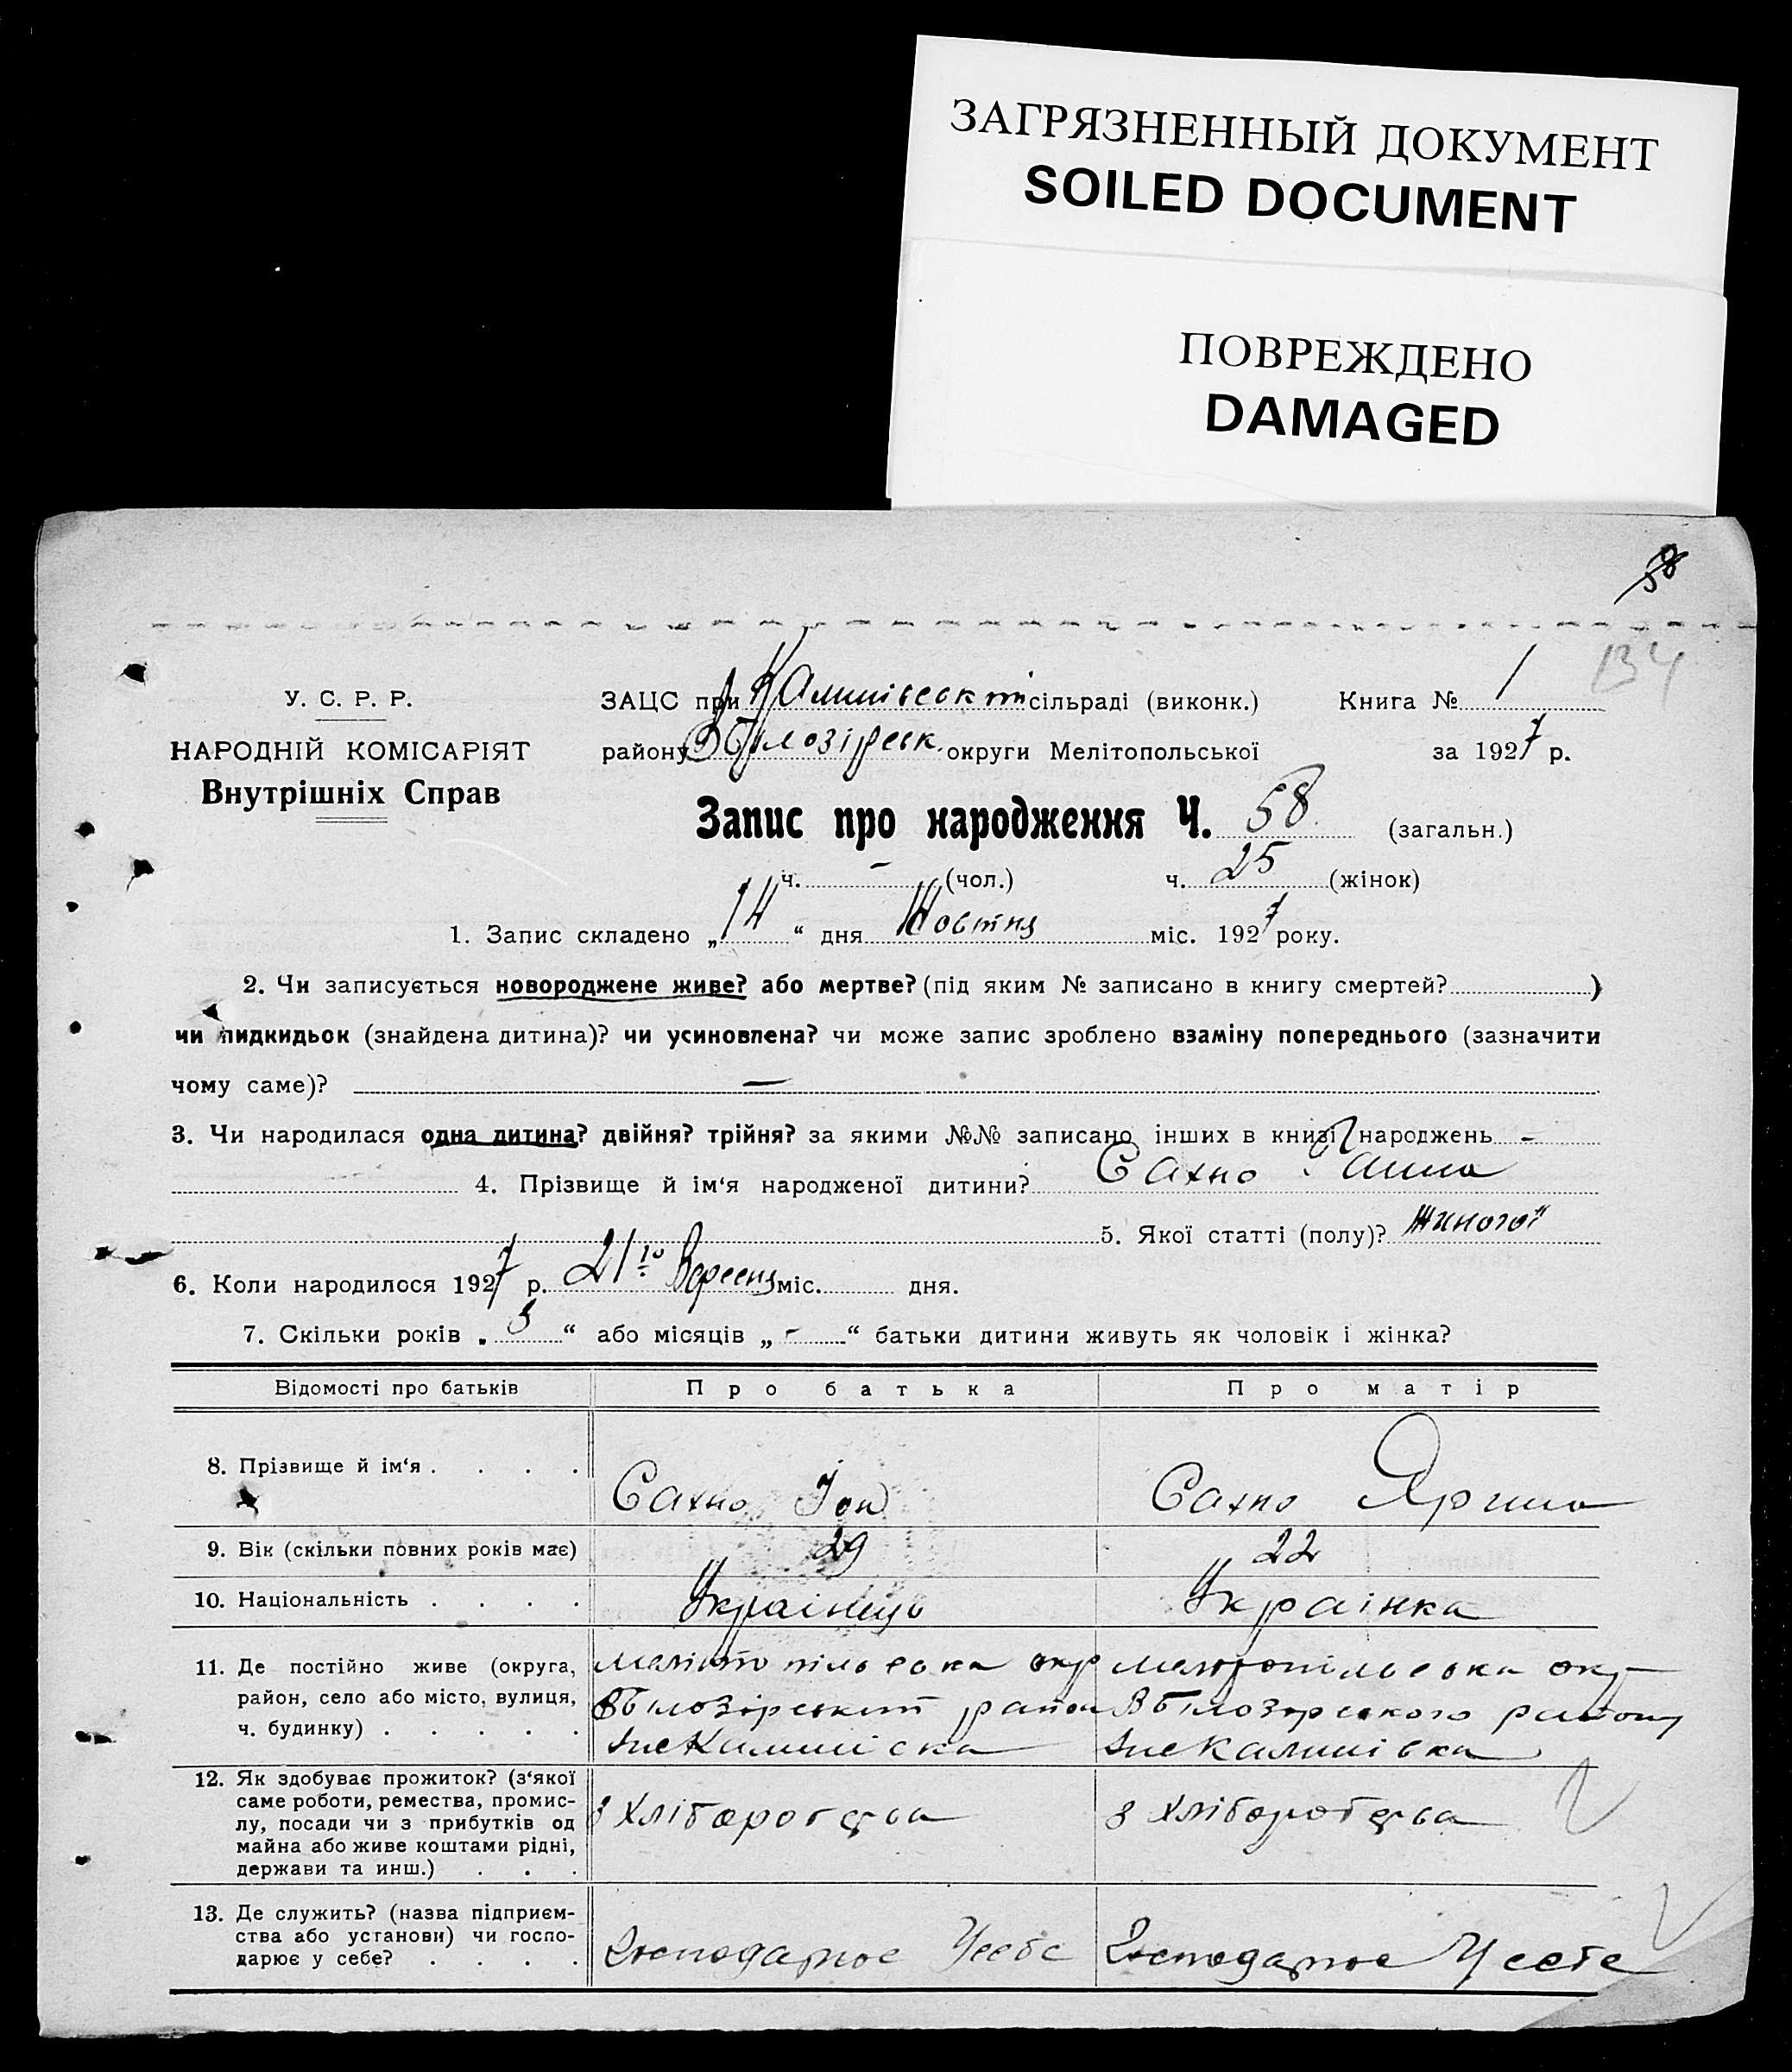 ЗАГРЯЗНЕННЫЙ ДОКУМЕНТ
SOILED DOCUMENT
ПОВРЕЖДЕНО
DAMAGED
58
134
У. С. Р. Р.
НАРОДНІЙ КОМІСАРІЯТ
Внутрішніх Справ
ЗАЦС при сільраді (виконк.) Книга № 1
району округи Мелітопольської за 1927 р.
Запис про народження Ч. 58 (загальн.)
ч. - (чол.) ч. 25 (жінок)
1. Запис складено „14“ дня Жовтня міс. 1927 року.
2. Чи записується новороджене живе? або мертве? (під яким № записано в книгу смертей? )
чи пидкидьок (знайдена дитина)? чи усиновлена? чи може запис зроблено взаміну попереднього (зазначити
чому саме)? —
3. Чи народилася одна дитина? двійня? трійня? за якими №№ записано інших в книзі народжень -
4. Прізвище й ім‘я народженої дитини? Сахно Анна
5. Якої статті (полу)?
6. Коли народилося 1927 р. 21го Вересня міс. дня.
7. Скільки років „3“ або місяців „-“ батьки дитини живуть як чоловік і жінка?
Відомості про батьків Про батька Про матір
8. Прізвище й ім‘я . . . . Сахно Іон Сахно Ярина
9. Вік (скільки повних років має) 29 22
10. Національність . . . . Українець Українка
11. Де постійно живе (округа,
район, село або місто, вулиця,
ч. будинку) . . . . .
Мелітопільська окр Мелітопільська окр
район району
Калинівка Калинівка
12. Як здобуває прожиток? (з‘якої
саме роботи, ремества, промис-
лу, посади чи з прибутків од
майна або живе коштами рідні,
держави та инш.) . . .
з хліборобства з хліборобства
13. Де служить? (назва підприєм-
ства або установи) чи госпо-
дарює у себе? . . . .
Господарює У себе Господарює У себе